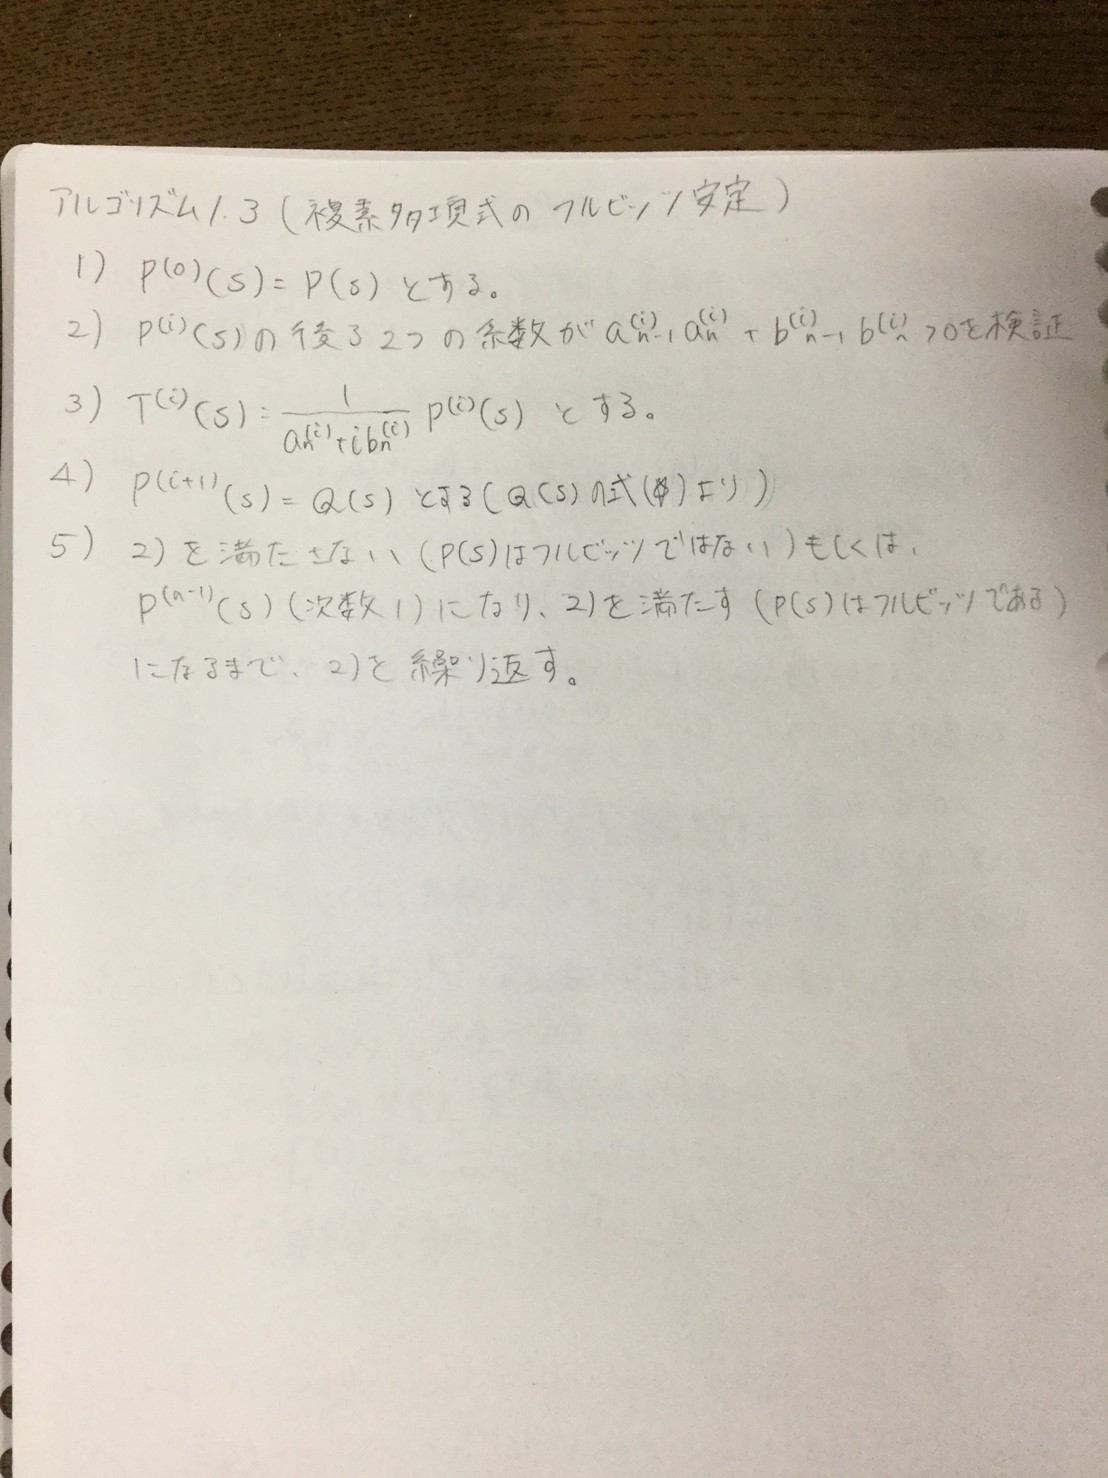 アルゴリズム1.3(複素多項式のフルビッツ安定)
1) P^(0)(s)=P(s)とする。
2) P^(i)(s)の後ろ2つの係数がa_{n-1}^{(i)}a_n^{(i)}+b_{n-1}^{(i)}b_n^{(i)}>0を検証
3) T^(i)(s)=\frac{1}{a_n^{(i)}+ib_n^{(i)}}P^(i)(s)とする。
4) P^(i+1)(s)=Q(s)とする(Q(s)の式()より)
5) 2)を満たさない(P(s)はフルビッツではない)もしくは、
P^(n-1)(s)(次数1)になり、2)を満たす(P(s)はフルビッツである)
になるまで、2)を繰り返す。